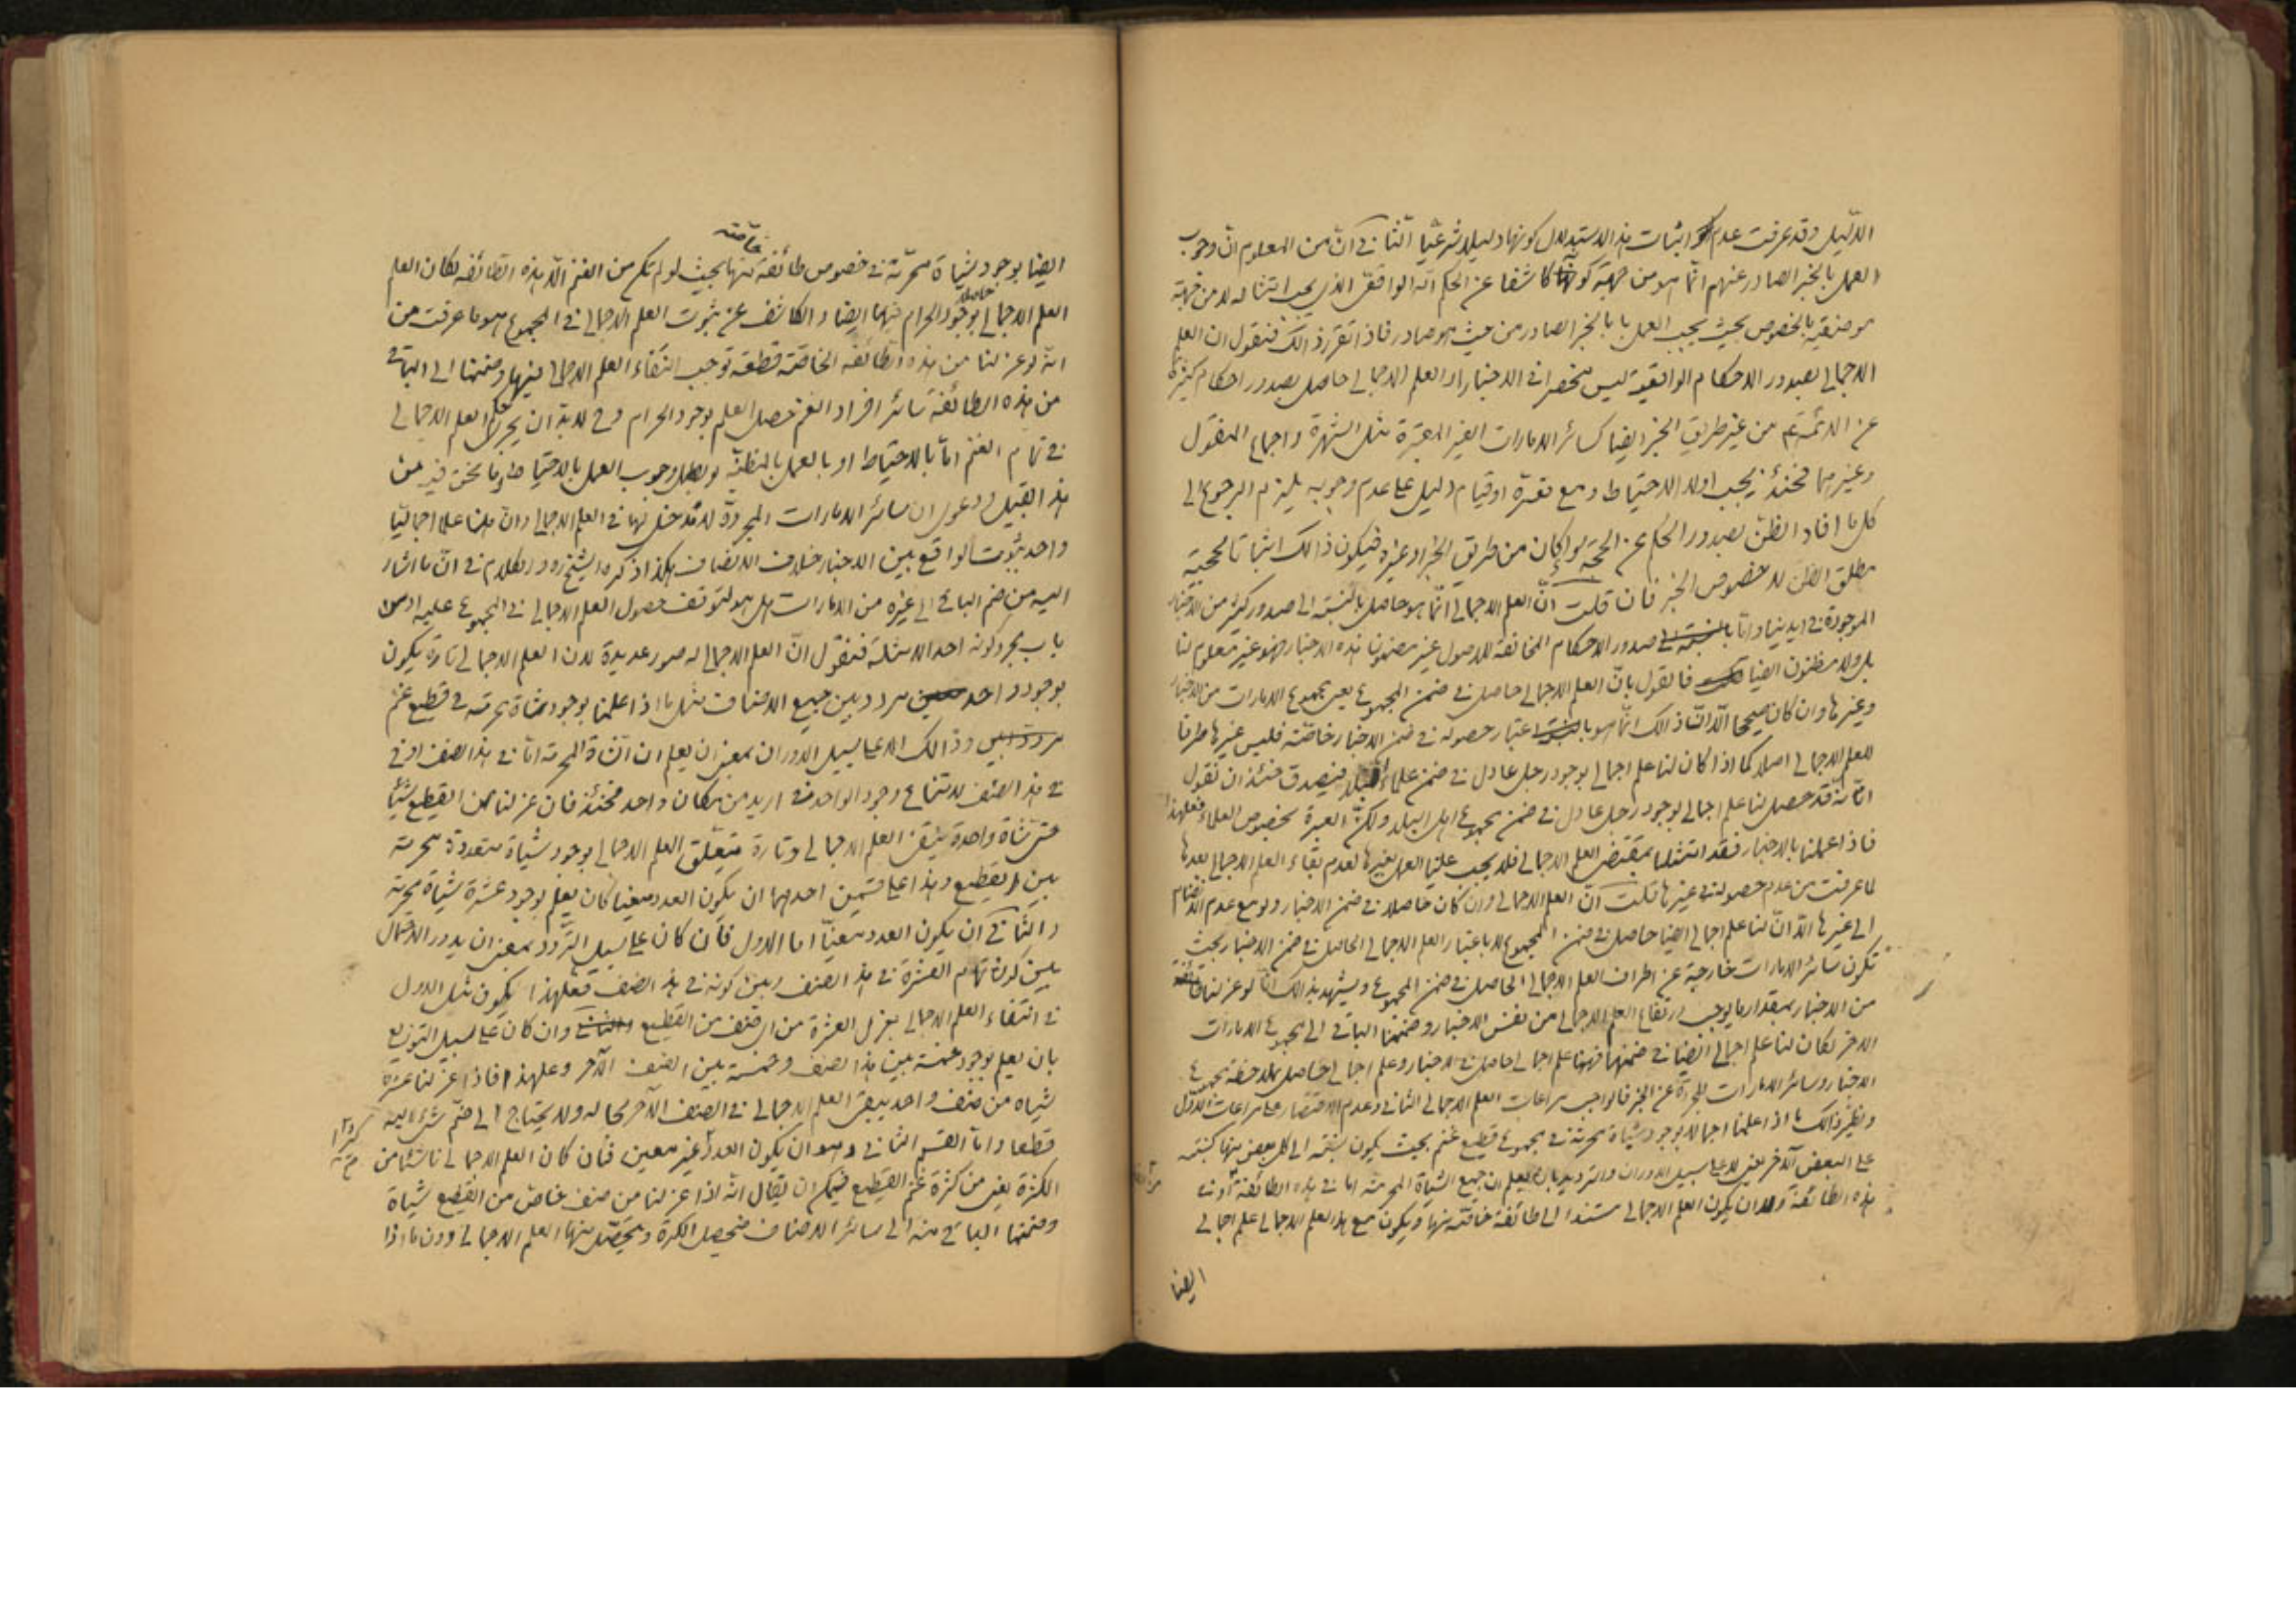 الدّليل وقد عرفت عدم اثبات هذا الاستدلال كونها دليلا شرعيّا الثاني انّ من المعلوم انّ وجوب
العمل بالخبر الصادر عنهم انّما هو من جهة كونه كاشفا عن الحكم الواقعي الذي يجب امتثاله لا من جهة
موضوعيته بالخصوص بحيث يجب العمل بالخبر الصادر من حيث هو صادر فاذا تقرر ذالك فنقول ان العلم
الاجمالي بصدور الاحكام الواقعية ليس منحصرا في الاخبار اذ العلم الاجمالي حاصل بصدور احكام كثيرة
عن الائمة ع من غير طريق الخبر ايضا كسائر الامارات الغير المعتبرة مثل الشهرة واجماع المنقول
وغيرهما فحينئذ يجب اولا الاحتياط ومع تعذره او قيام دليل على عدم وجوبه يلزم الرجوع الى
كل ما افاد الظن بصدور الحكم عن الحجة سواء كان من طريق الخبر او غيره فيكون ذالك اثباتا لحجية
مطلق الظن لا خصوص الخبر فان قلت انّ العلم الاجمالي انّما هو حاصل بالنسبة الى صدور كثير من الاخبار
الموجودة في ايدينا وامّا صدور الاحكام المخالفة للاصول غير مضمون هذه الاخبار فهو غير معلوم لنا
بل ولا مظنون ايضا فما نقول بانّ العلم الاجمالي حاصل في ضمن المجموع يعني مجموع الامارات من الاخبار
وغيرها وان كان صحيحا الّا انّ ذالك انّما هو باعتبار حصوله في ضمن الاخبار خاصّة فليس غيرها طرفا
للعلم الاجمالي اصلا كما اذا كان لنا علم اجمالي بوجود رجل عادل في ضمن علماء البلد فيصدق حينئذ ان نقول
انّه قد حصل لنا علم اجمالي بوجود رجل عادل في ضمن مجموع اهل البلد ولكنّ العبرة بخصوص العلماء فعلهذا
فاذا عملنا بالاخبار فقد امتثلنا بمقتضى العلم الاجمالي فلا يجب علينا العمل بغيرها لعدم بقاء العلم الاجمالي بعدها
لما عرفت من عدم حصوله في غيرها قلت انّ العلم الاجمالي وان كان حاصلا في ضمن الاخبار ولو مع عدم الانضمام
الى غيرها الّا انّ لنا علم اجمالي ايضا حاصل في ضمن المجموع لا باعتبار العلم الاجمالي الحاصل في ضمن الاخبار بحيث
تكون سائر الامارات خارجة عن اطراف العلم الاجمالي الحاصل في ضمن المجموع ويشهد بذالك انّا لو عزلنا طائفة
من الاخبار بمقدار ما يوجب ارتفاع العلم الاجمالي من نفس الاخبار وضممنا الباقي الى مجموع الامارات
الاخر لكان لنا علم اجمالي ايضا في ضمنها فهنا علم اجمالي حاصل في الاخبار وعلم اجمالي حاصل بملاحظة مجموع
الاخبار وسائر الامارات المجردة عن الخبر فالواجب مراعات العلم الاجمالي الثاني وعدم الاقتصار على مراعات الاوّل
ونظير ذالك ما اذا علمنا اجمالا بوجود شياة محرمة في مجموع قطيع غنم بحيث يكون نسبته الى كل بعض منها كنسبته
على البعض الآخر يعني لا على سبيل الدوران والترديد بان يعلم ان جميع الشياة المحرمة اما في هذه الطائفة او في
هذه الطائفة وان يكون العلم الاجمالي مستندا الى طائفة خاصّة منها ويكون مع هذا العلم الاجمالي علم اجمالي
ايضا
خاصّة
ايضا بوجود شياة محرّمة في خصوص طائفة منها بحيث لو لم تكن من الغنم الّا هذه الطائفة لكان العلم
العلم الاجمالي بوجود الحرام فيها حاصلا ايضا والكاشف عن ثبوت العلم الاجمالي في المجموع هو ما عرفت من
انّه لو عزلنا من هذه الطائفة الخاصّة قطعة توجب انتفاء العلم الاجمالي فيها وضممنا الى الباقي
من هذه الطائفة سائر افراد الغنم حصل العلم بوجود الحرام وح لا بد ان يجري حكم العلم الاجمالي
في تمام الغنم امّا بالاحتياط او بالعمل بالمظنّة لو بطل وجوب العمل بالاحتياط وما نحن فيه من
هذا القبيل ودعوى ان سائر الامارات المجردة لا مدخل لها في العلم الاجمالي وانّ هنا علما اجماليّا
واحدا بثبوت الواقع بين الاخبار خلاف الانصاف هكذا ذكره الشيخ ره والكلام في انّ ما اشار
اليه من ضم الباقي الى غيره من الامارات هل هو لتوقف حصول العلم الاجمالي في المجموع عليه او من
باب مجرد كونه احد الامثلة فنقول انّ العلم الاجمالي له صور عديدة لان العلم الاجمالي تارة يكون
بوجود واحد مردد بين جميع الاصناف مثل ما اذا علمنا بوجود شاة محرمة في قطيع غنم
وذالك لا على سبيل الدوران بمعنى ان يعلم ان الشاة المحرمة امّا في هذا الصنف او في
في هذا الصنف لامتناع وجود الواحد في ازيد من مكان واحد فحينئذ فان عزلنا من القطيع شيئا
حتى شاة واحدة ينتفي العلم الاجمالي وتارة يتعلّق العلم الاجمالي بوجود شياة متعددة محرمة
بين القطيع وهذا على قسمين احدهما ان يكون العدد معينا كان يعلم بوجود عشرة شياة محرمة
والثاني ان يكون العدد معيّنا اما الاول فان كان على سبيل التّردد بمعنى ان يدور الاحتمال
بين كون تمام العشرة في هذا الصنف وبين كونه في هذا الصنف فعلهذا يكون مثل الاول
في انتفاء العلم الاجمالي بعزل العشرة من اي صنف من القطيع وان كان على سبيل التوزيع
بان يعلم بوجود خمسة بين هذا الصنف وخمسة بين الصنف الآخر وعلهذا فاذا عزلنا عشرة
شياه من صنف واحد يبقى العلم الاجمالي في الصنف الآخر بحاله ولا يحتاج الى ضمّ شيء اليه
قطعا وامّا القسم الثاني وهو ان يكون العدد غير معين فان كان العلم الاجمالي ناشئا من
الكثرة يعني من كثرة غنم القطيع فيمكن ان يقال انه اذا عزلنا من صنف خاصّ من القطيع شياة
وضممنا الباقي منه الى سائر الاصناف فتحصل الكثرة ويحصّل منها العلم الاجمالي ودون ما اذا